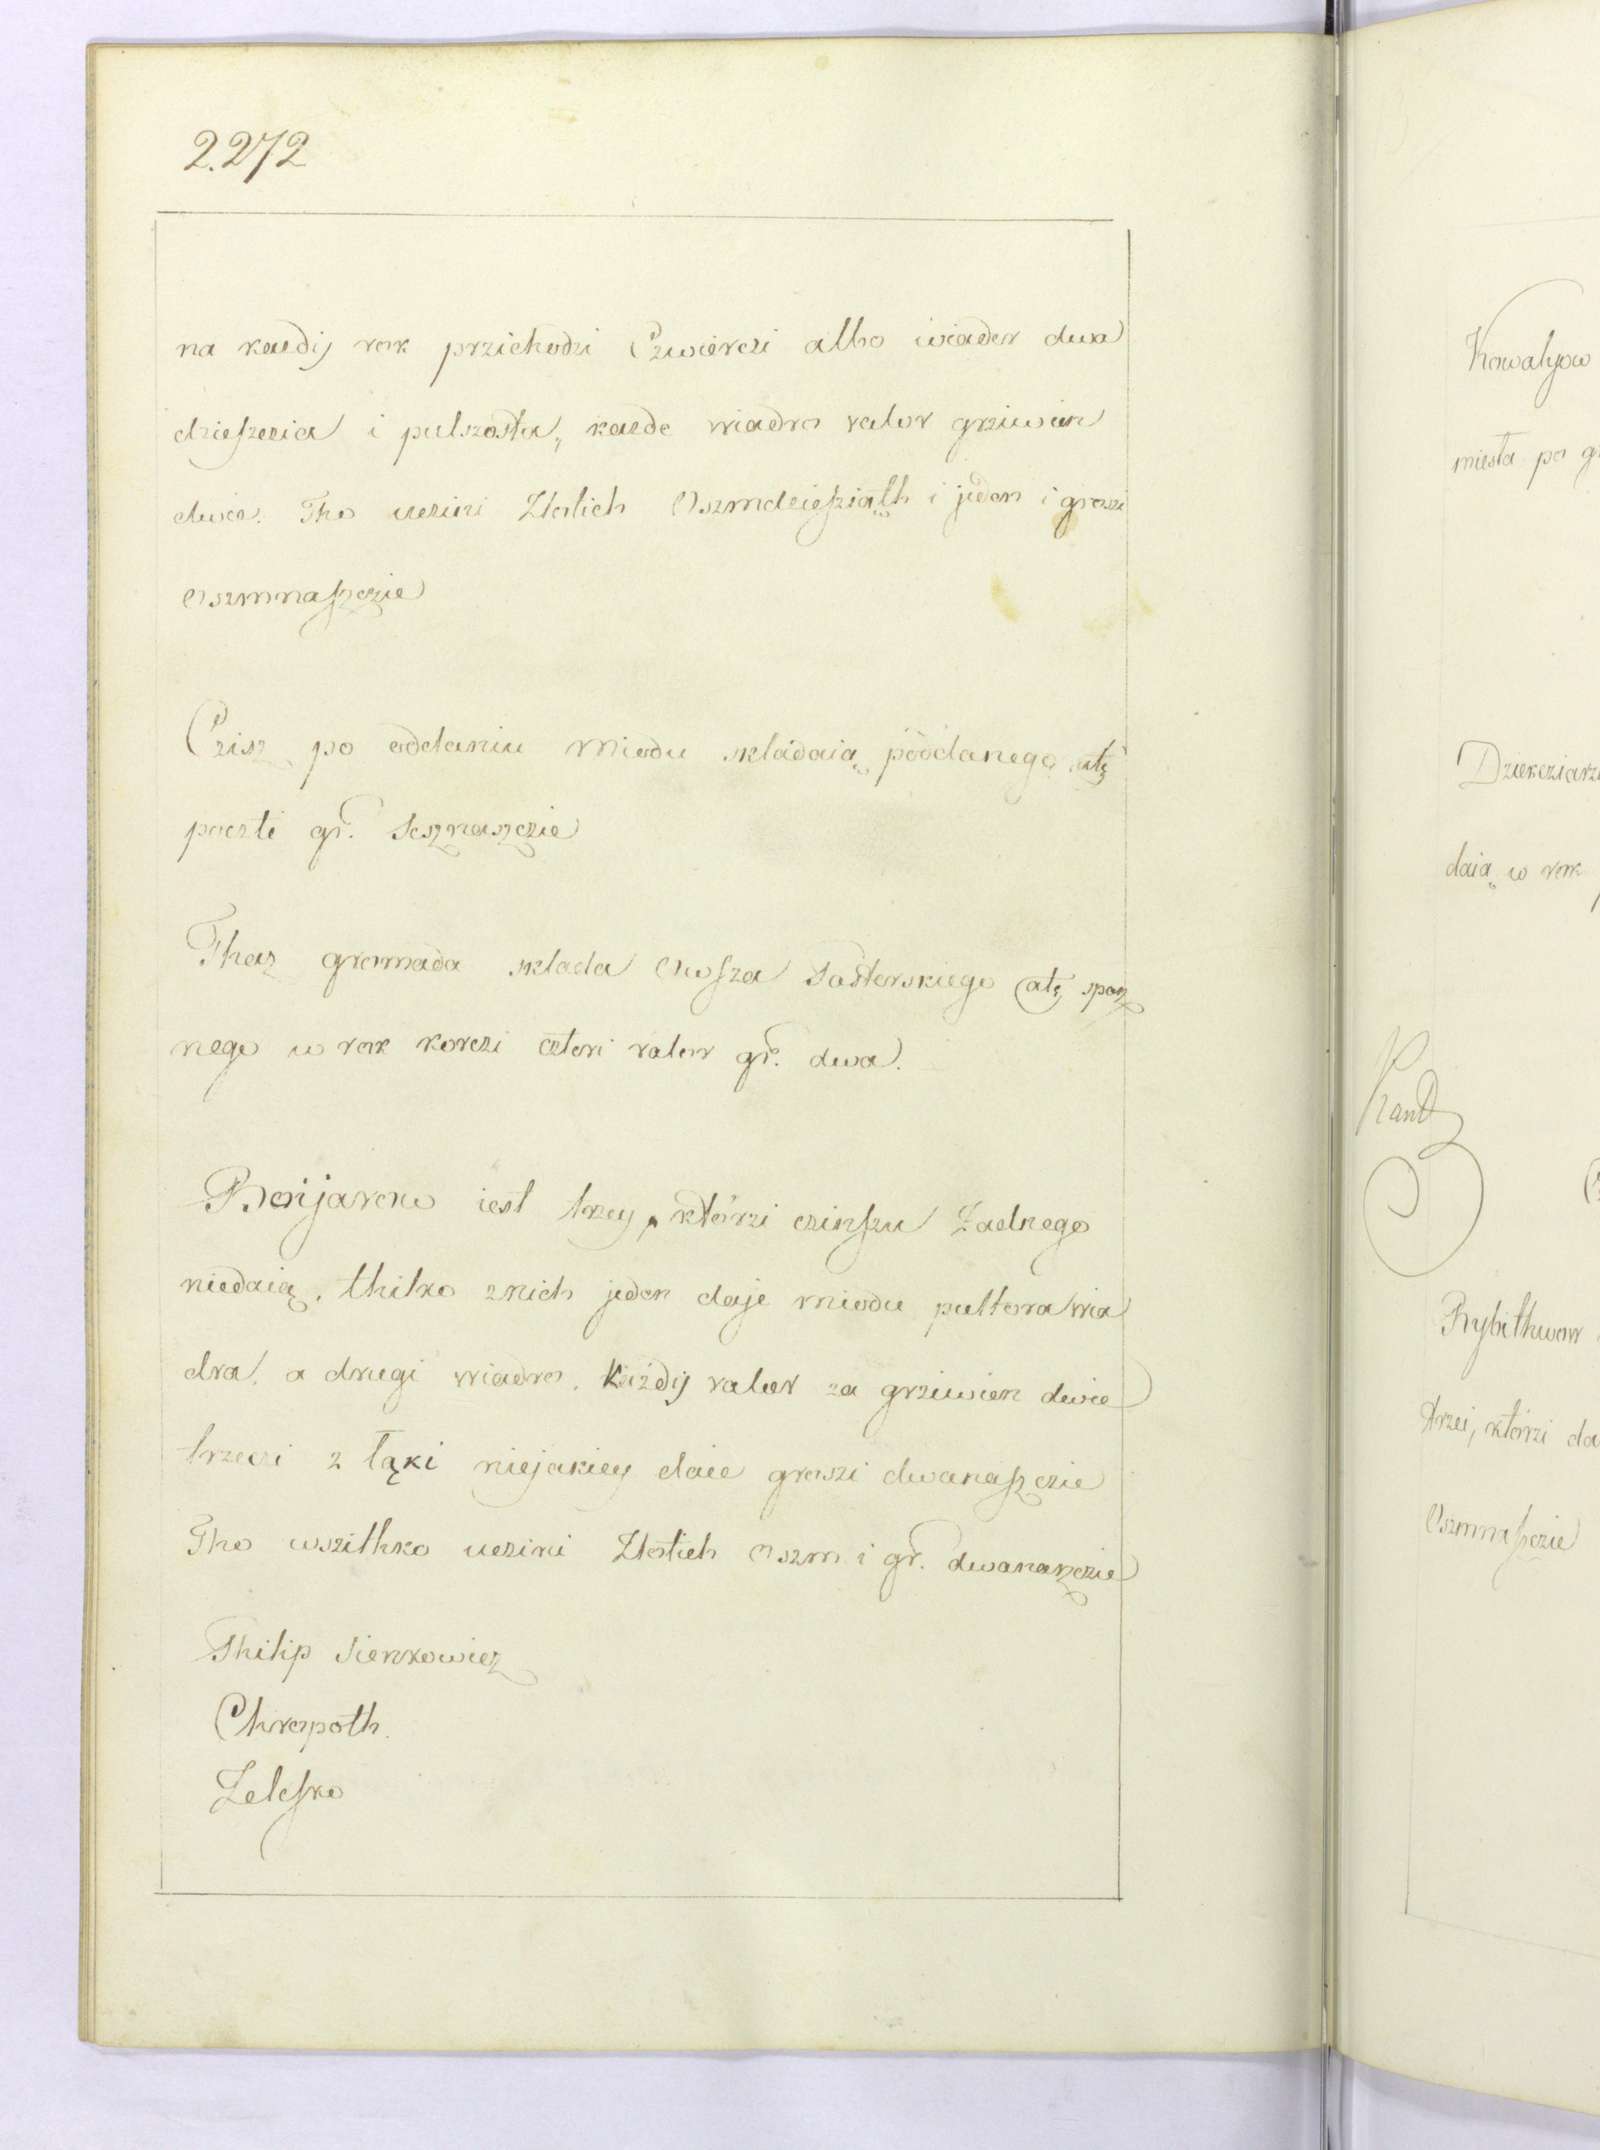 2.272
na kaedij rok przichodzi Czwierczi albo wiader dwa
dzieszczia i pulszosta, kaede wiadro valor grziwien
dwie. Tho uczini Zlotich Oszmdzieszią̨th i jeden i groszi
Oszmnaszczie
Czisz po oddaniu miodu składaią poddanego
poczti gr. Sesznaszczie
Thaz gromada sklada Owsza Sastorskiego
nego w rok korczi cztori valor gr. dwa.
Boijarow iest trzey, którzi czinszu Zadnego
niedaią, thilko znich jeden daje miodu pultora wia
dra, a drugi wiadro, Każdij valor za grziwien dwie
trzeczi z łąki niejakiey daie groszi dwanaszczie
Tho wszithko uczini Zlotich Oszm i gr. dwananczie
Philip Sienkowicz
Chrapoth.
Zeleszko
Kowalyow
miesta po
Dziekcziarz
daią w rok
Rybithwow
trzei, którzi da
Oszmnaszczie